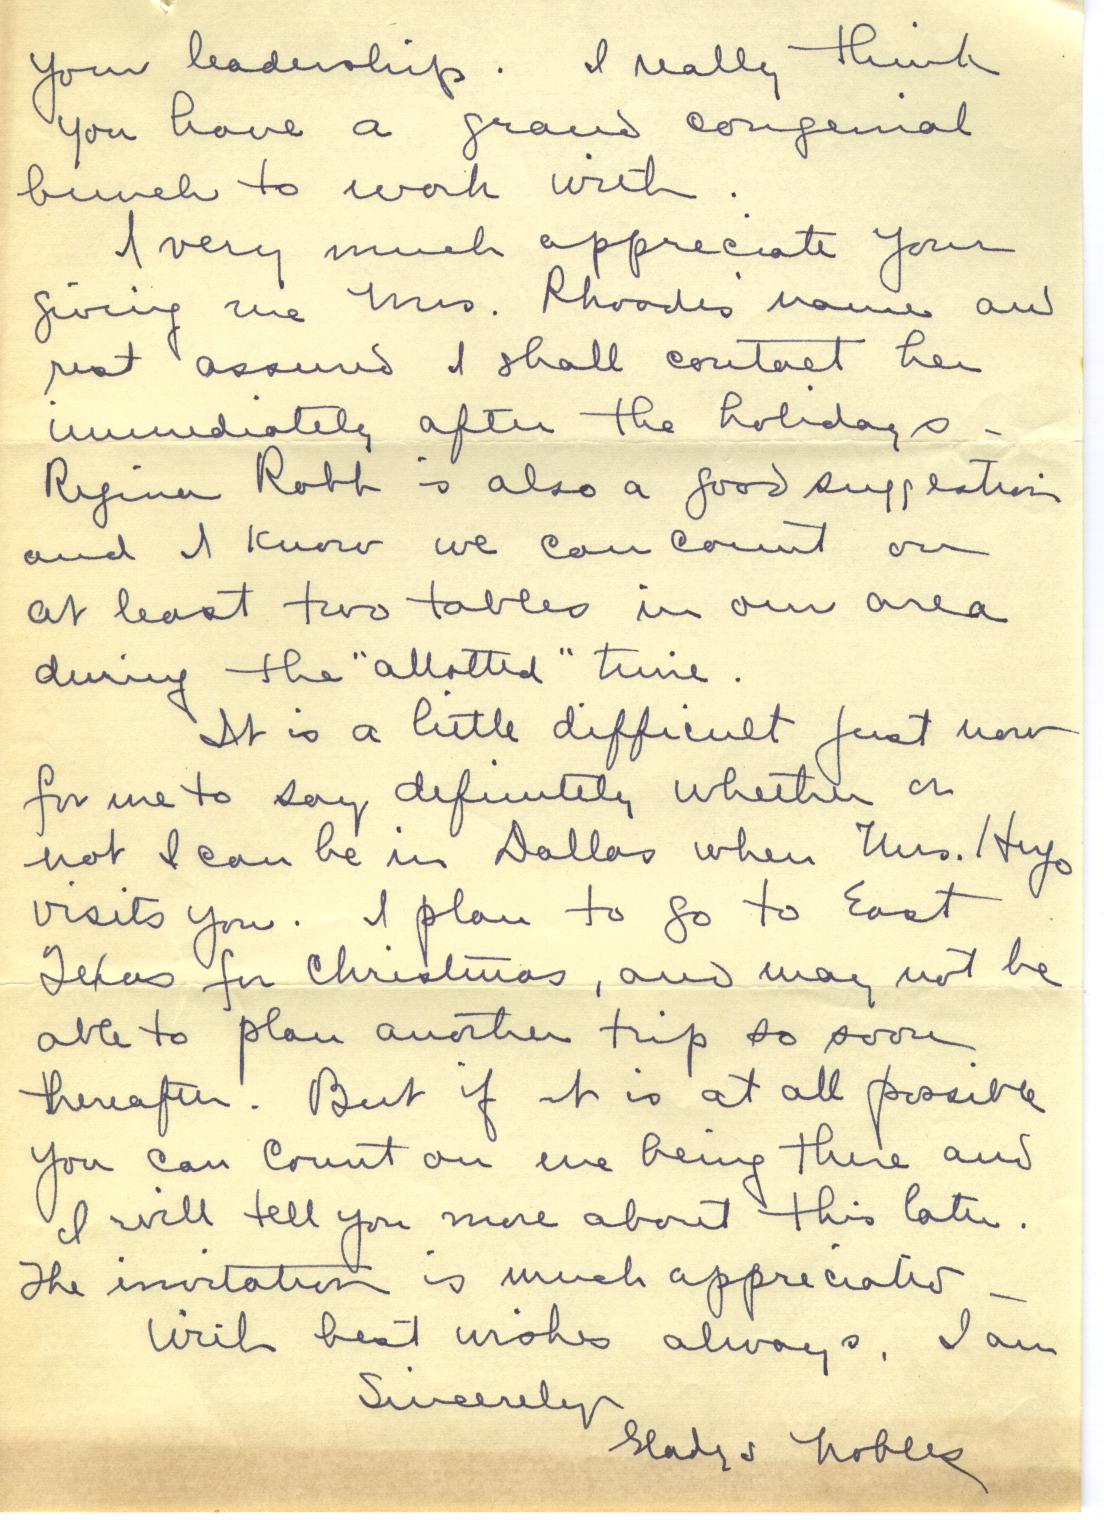 your leadership. I really think
you have a grand congenial
bunch to work with.
I very much appreciate your
giving me Mrs. Rhoades' name and
rest assured I shall contact her
immediately after the holidays -
Regina Robb is also a good suggestion
and I know we can count on
at least two tables in our area
during the "allotted" time.
It is a little difficult just now
for me to say definitely whether or
not I can be in Dallas when Mrs. Hugo
visits you. I plan to go to East
Texas for Christmas, and may not be
able to plan another trip so soon
thereafter. But if it is at all possible
you can count on me being there and
I will tell you more about this later.
The invitation is much appreciated -
With best wishes always, I am
Sincerely
Gladys Nobles